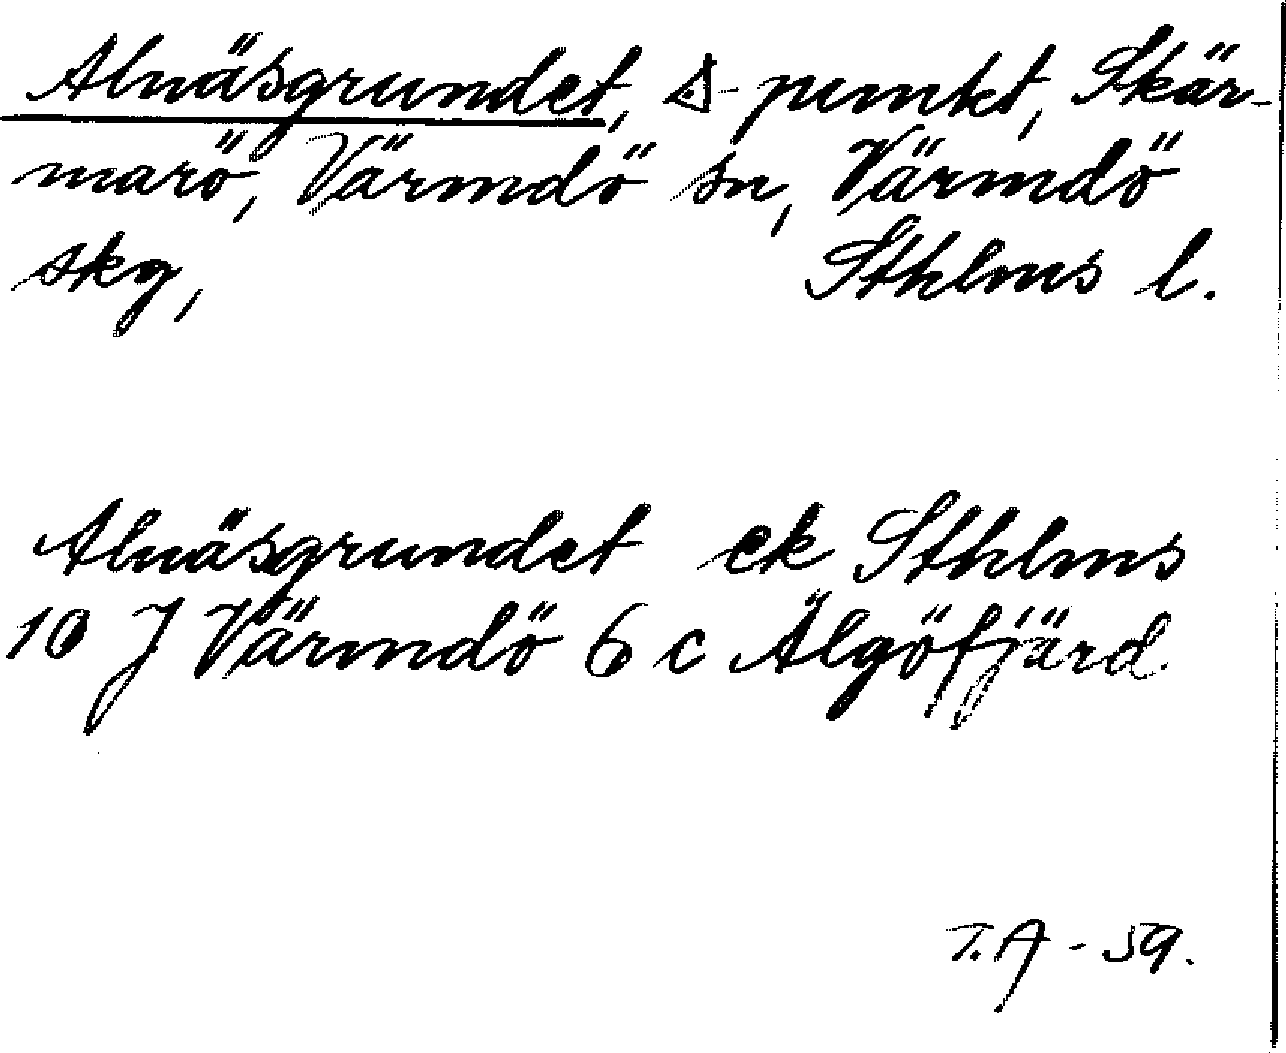 Alnäsgrundet, △-punkt, Skär-
marö, Värmdö sn, Värmdö
skg, Sthlms l.
Alnäsgrundet ek Sthlms
10 J Värmdö 6 c Älgöfjärd.
T.A - 59.